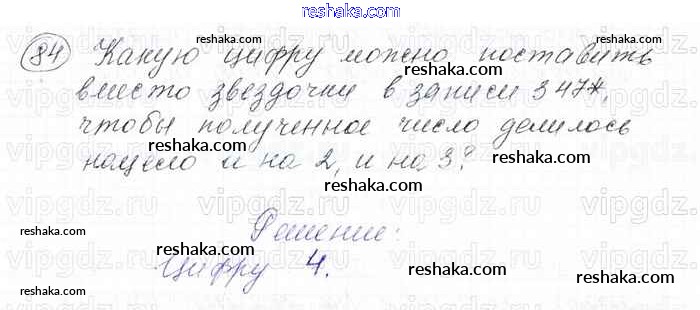 reshaka.com
84 Какую цифру можно поставить
вместо звездочки в записи 347*,
чтобы полученное число делилось
нацело и на 2, и на 3?
Решение:
Цифру 4.
reshaka.com
reshaka.com
reshaka.com
reshaka.com
reshaka.com
reshaka.com
reshaka.com
reshaka.com
vipgdz.com
vipgdz.com
vipgdz.com